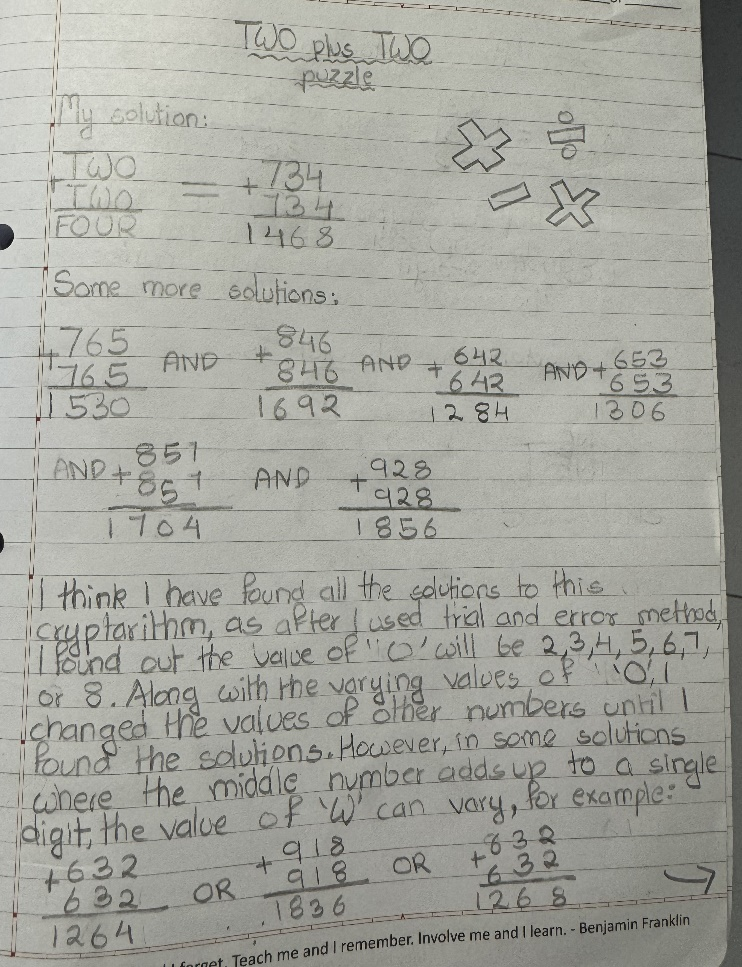 TWO plus TWO
puzzle
My solution:
+TWO = +734
TWO 734
FOUR 1468
Some more solutions:
+765 AND +846 AND +642 AND +653
765 846 642 653
1530 1692 1284 1306
AND +857 AND +928
857 928
1704 1856
I think I have found all the solutions to this
cryptarithm, as after I used trial and error method,
I found out the value of "O" will be 2,3,4,5,6,7,
or 8. Along with the varying values of "O", I
changed the values of other numbers until I
found the solutions. However, in some solutions
where the middle number adds up to a single
digit, the value of 'W' can vary, for example:
+632 OR +918 OR +632
632 918 632
1264 1836 1268
forget. Teach me and I remember. Involve me and I learn. - Benjamin Franklin